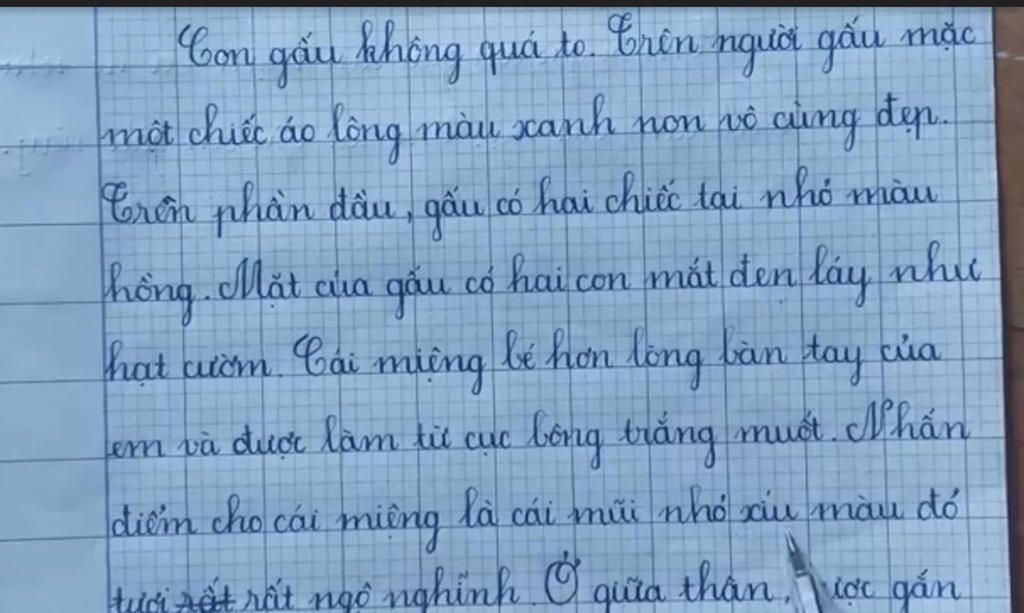 Con gấu không quá to. Trên người gấu mặc
một chiếc áo lông màu xanh non vô cùng đẹp.
Trên phần đầu, gấu có hai chiếc tai nhỏ màu
hồng. Mặt của gấu có hai con mắt đen láy như
hạt cườm. Cái miệng bé hơn lòng bàn tay của
em và được làm từ cục bông trắng muốt. Nhấn
điểm cho cái miệng là cái mũi nhỏ xíu màu đỏ
tươi rất rất ngộ nghĩnh. Ở giữa thân, gắn